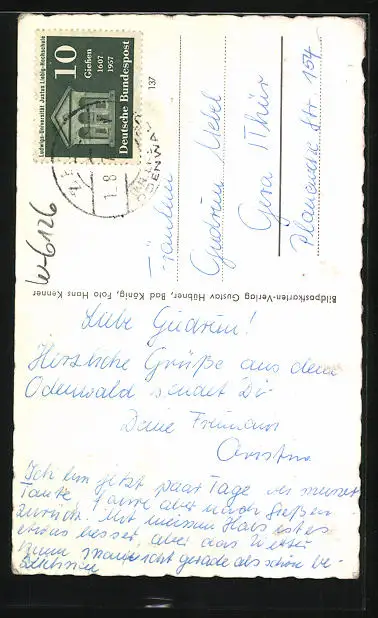 Ludwigs-Universität Justus Liebig-Hochschule
10
Gießen
1607
1957
Deutsche Bundespost
ODENWA
137
Fräulein
Gudrun Uebel
Gera Thür
Str 154
Bildpostkarten-Verlag Gustav Hübner, Bad König, Foto Hans Kenner
W-6126
Liebe Gudrun!
Herzliche Grüße aus dem
Odenwald sendet Dir
Deine Freundin
Christin
Ich bin jetzt paar Tage bei meiner
Tante, fahre aber nach Gießen
zurück. Mit meinem Hals ist es
etwas besser, aber das Wetter
kann man nicht gerade als schön be-
zeichnen